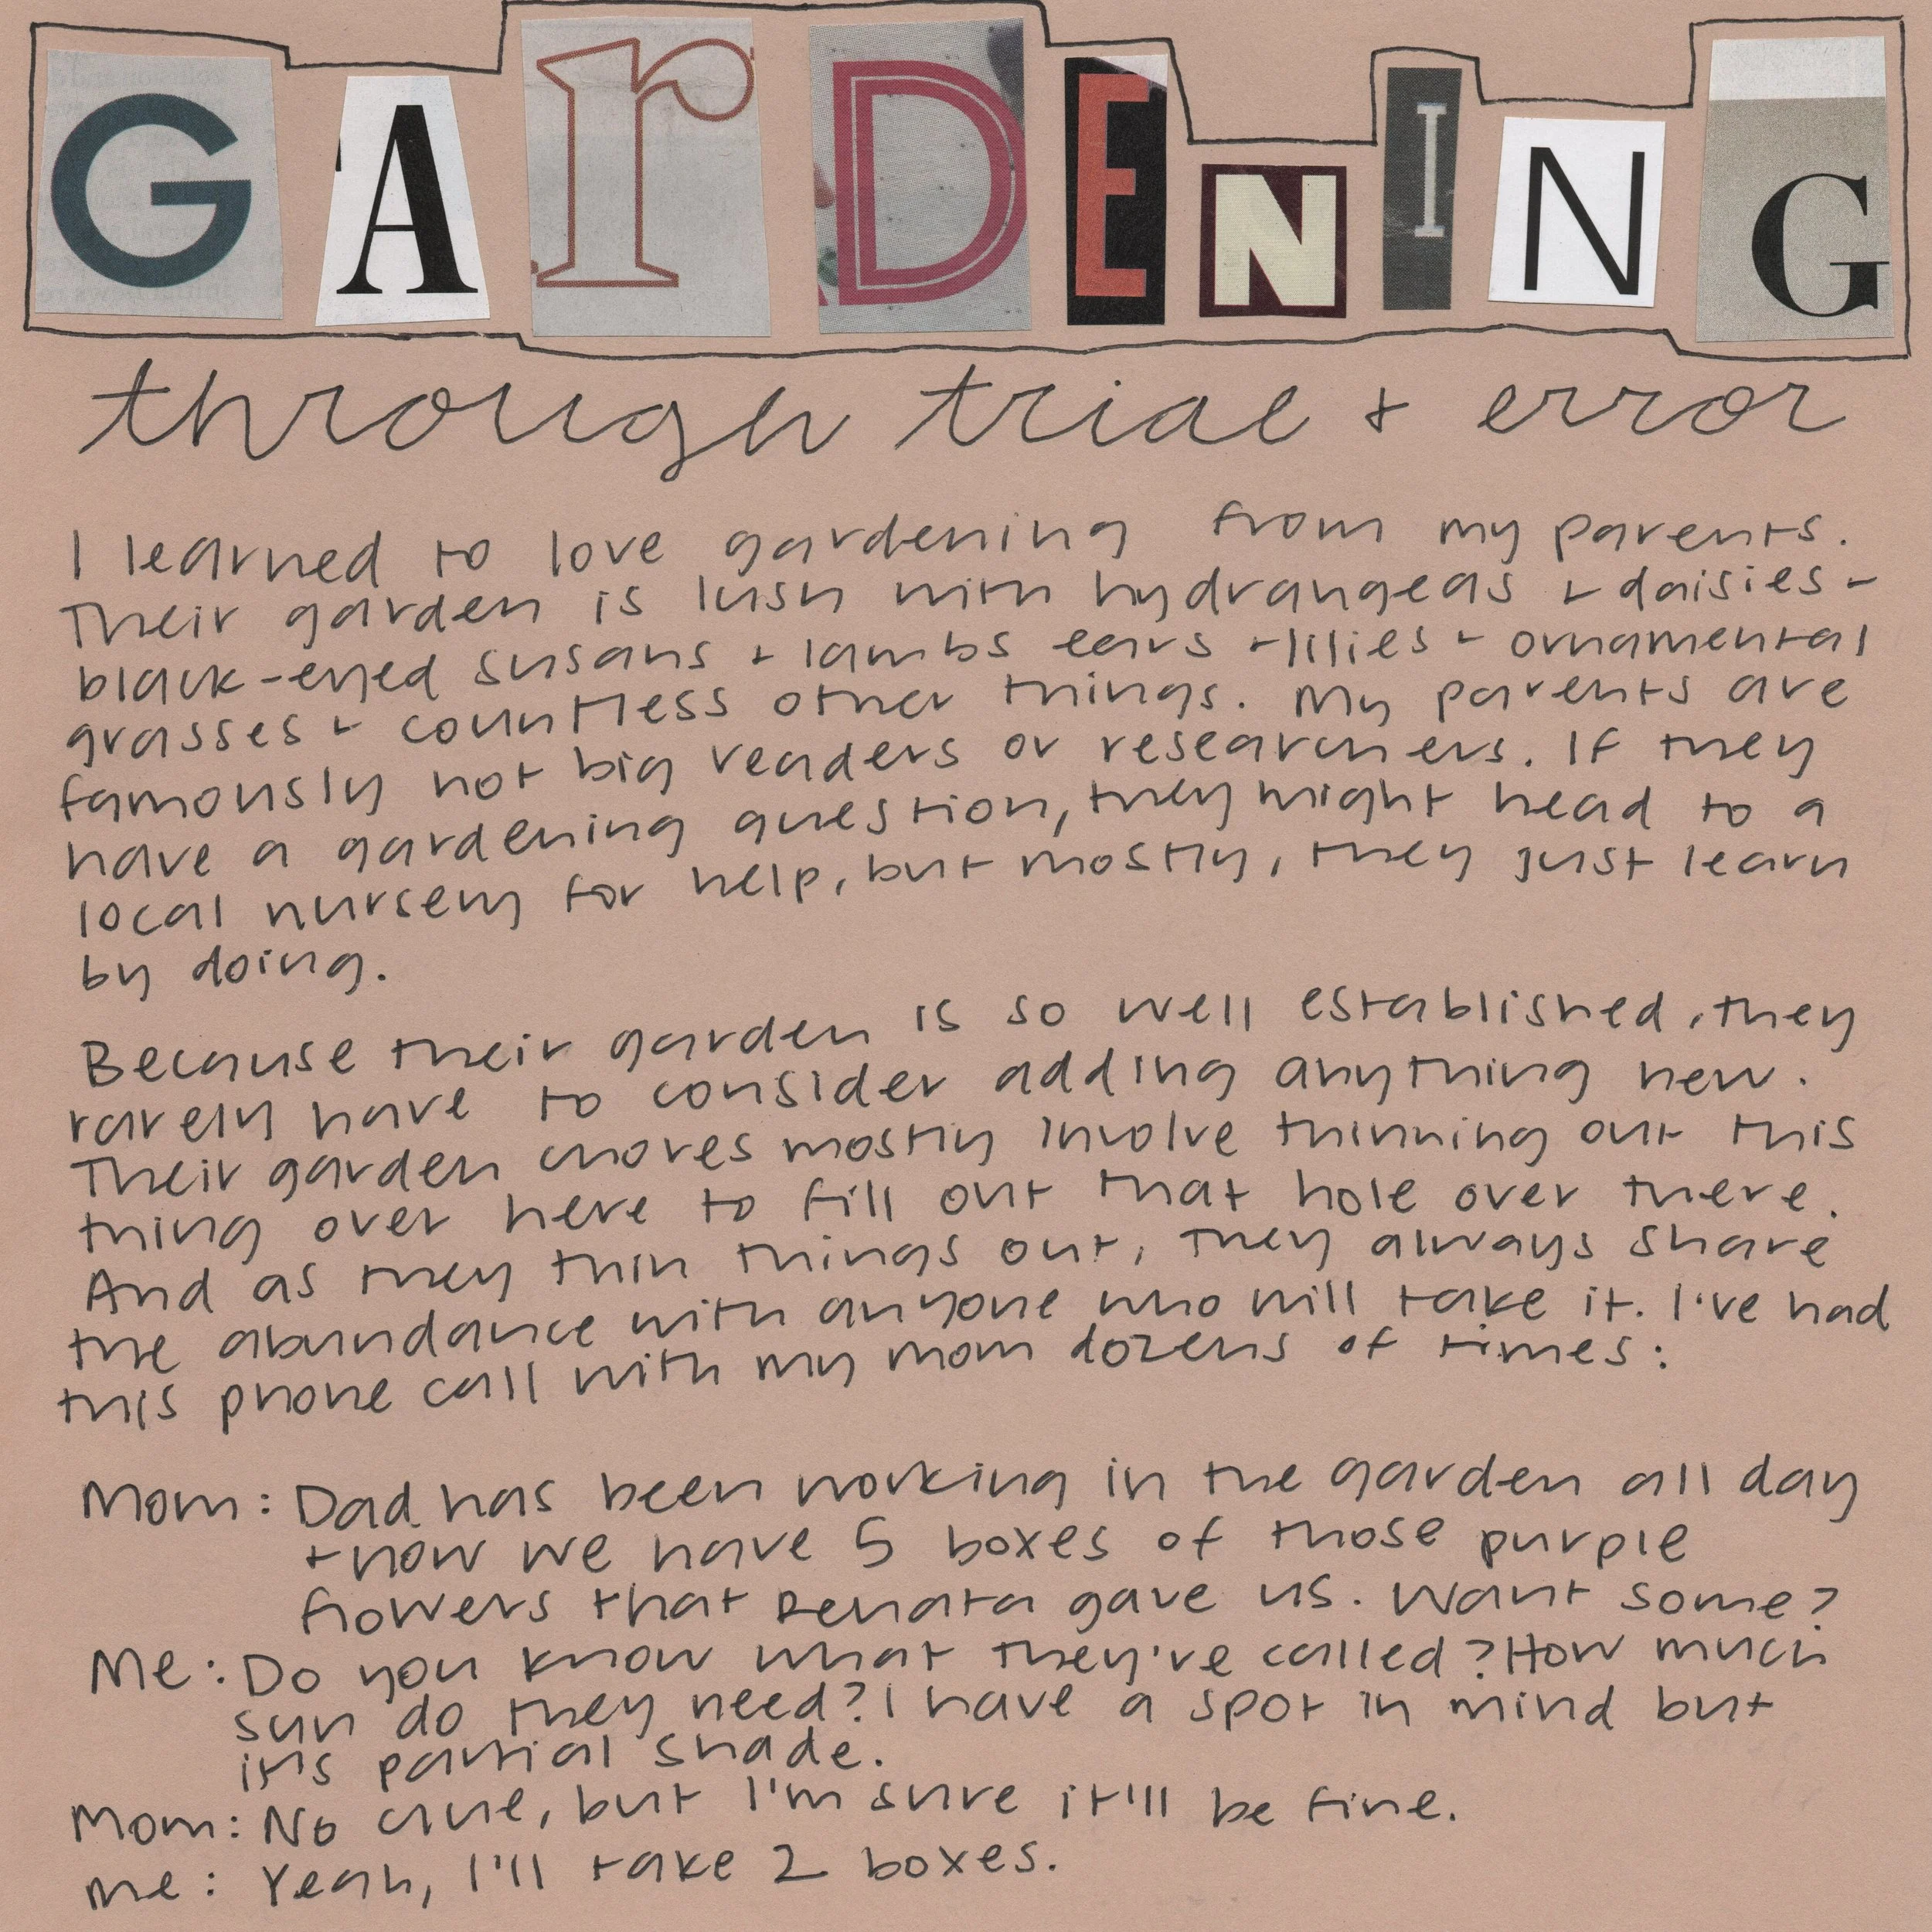 GArDENING
through trial + error
I learned to love gardening from my parents.
Their garden is lush with hydrangeas + daisies +
black-eyed susans + lambs ears + lilies + ornamental
grasses + countless other things. My parents are
famously not big readers or researchers. If they
have a gardening question, they might head to a
local nursery for help, but mostly, they just learn
by doing.
Because their garden is so well established, they
rarely have to consider adding anything new.
Their garden chores mostly involve thinning out this
thing over here to fill out that hole over there.
And as they thin things out, they always share
the abundance with anyone who will take it. I've had
this phone call with my mom dozens of times:
Mom: Dad has been working in the garden all day
+ now we have 5 boxes of those purple
flowers that Renata gave us. Want some?
Me: Do you know what they're called? How much
sun do they need? I have a spot in mind but
it's partial shade.
Mom: No clue, but I'm sure it'll be fine.
Me: Yeah, I'll take 2 boxes.